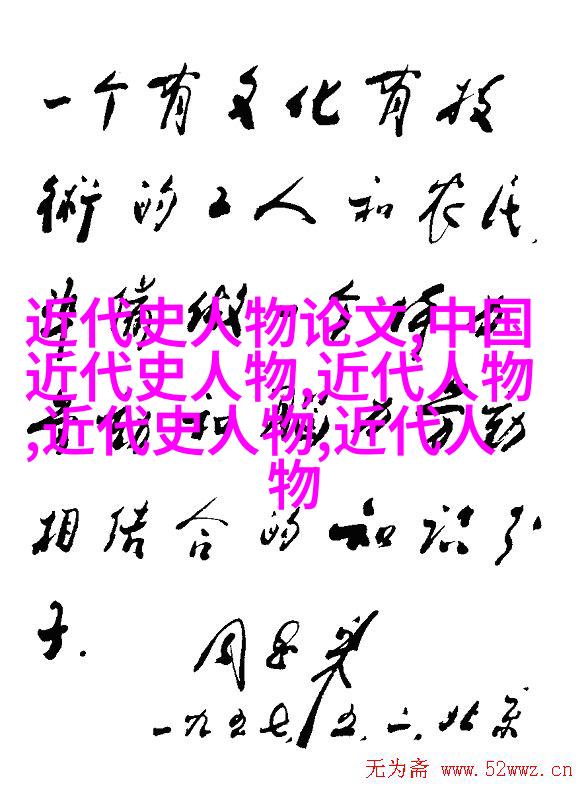 一个有文化有技
術的工人和农民,
準備做一个
近代史人物论文,中国
近代史人物,近代人物
动和脑力劳动
,近代史人物,近代人
物
相结合的知识分
子.
周恩来
一九五七.五.一.北京
无为斋 www.52wwz.cn